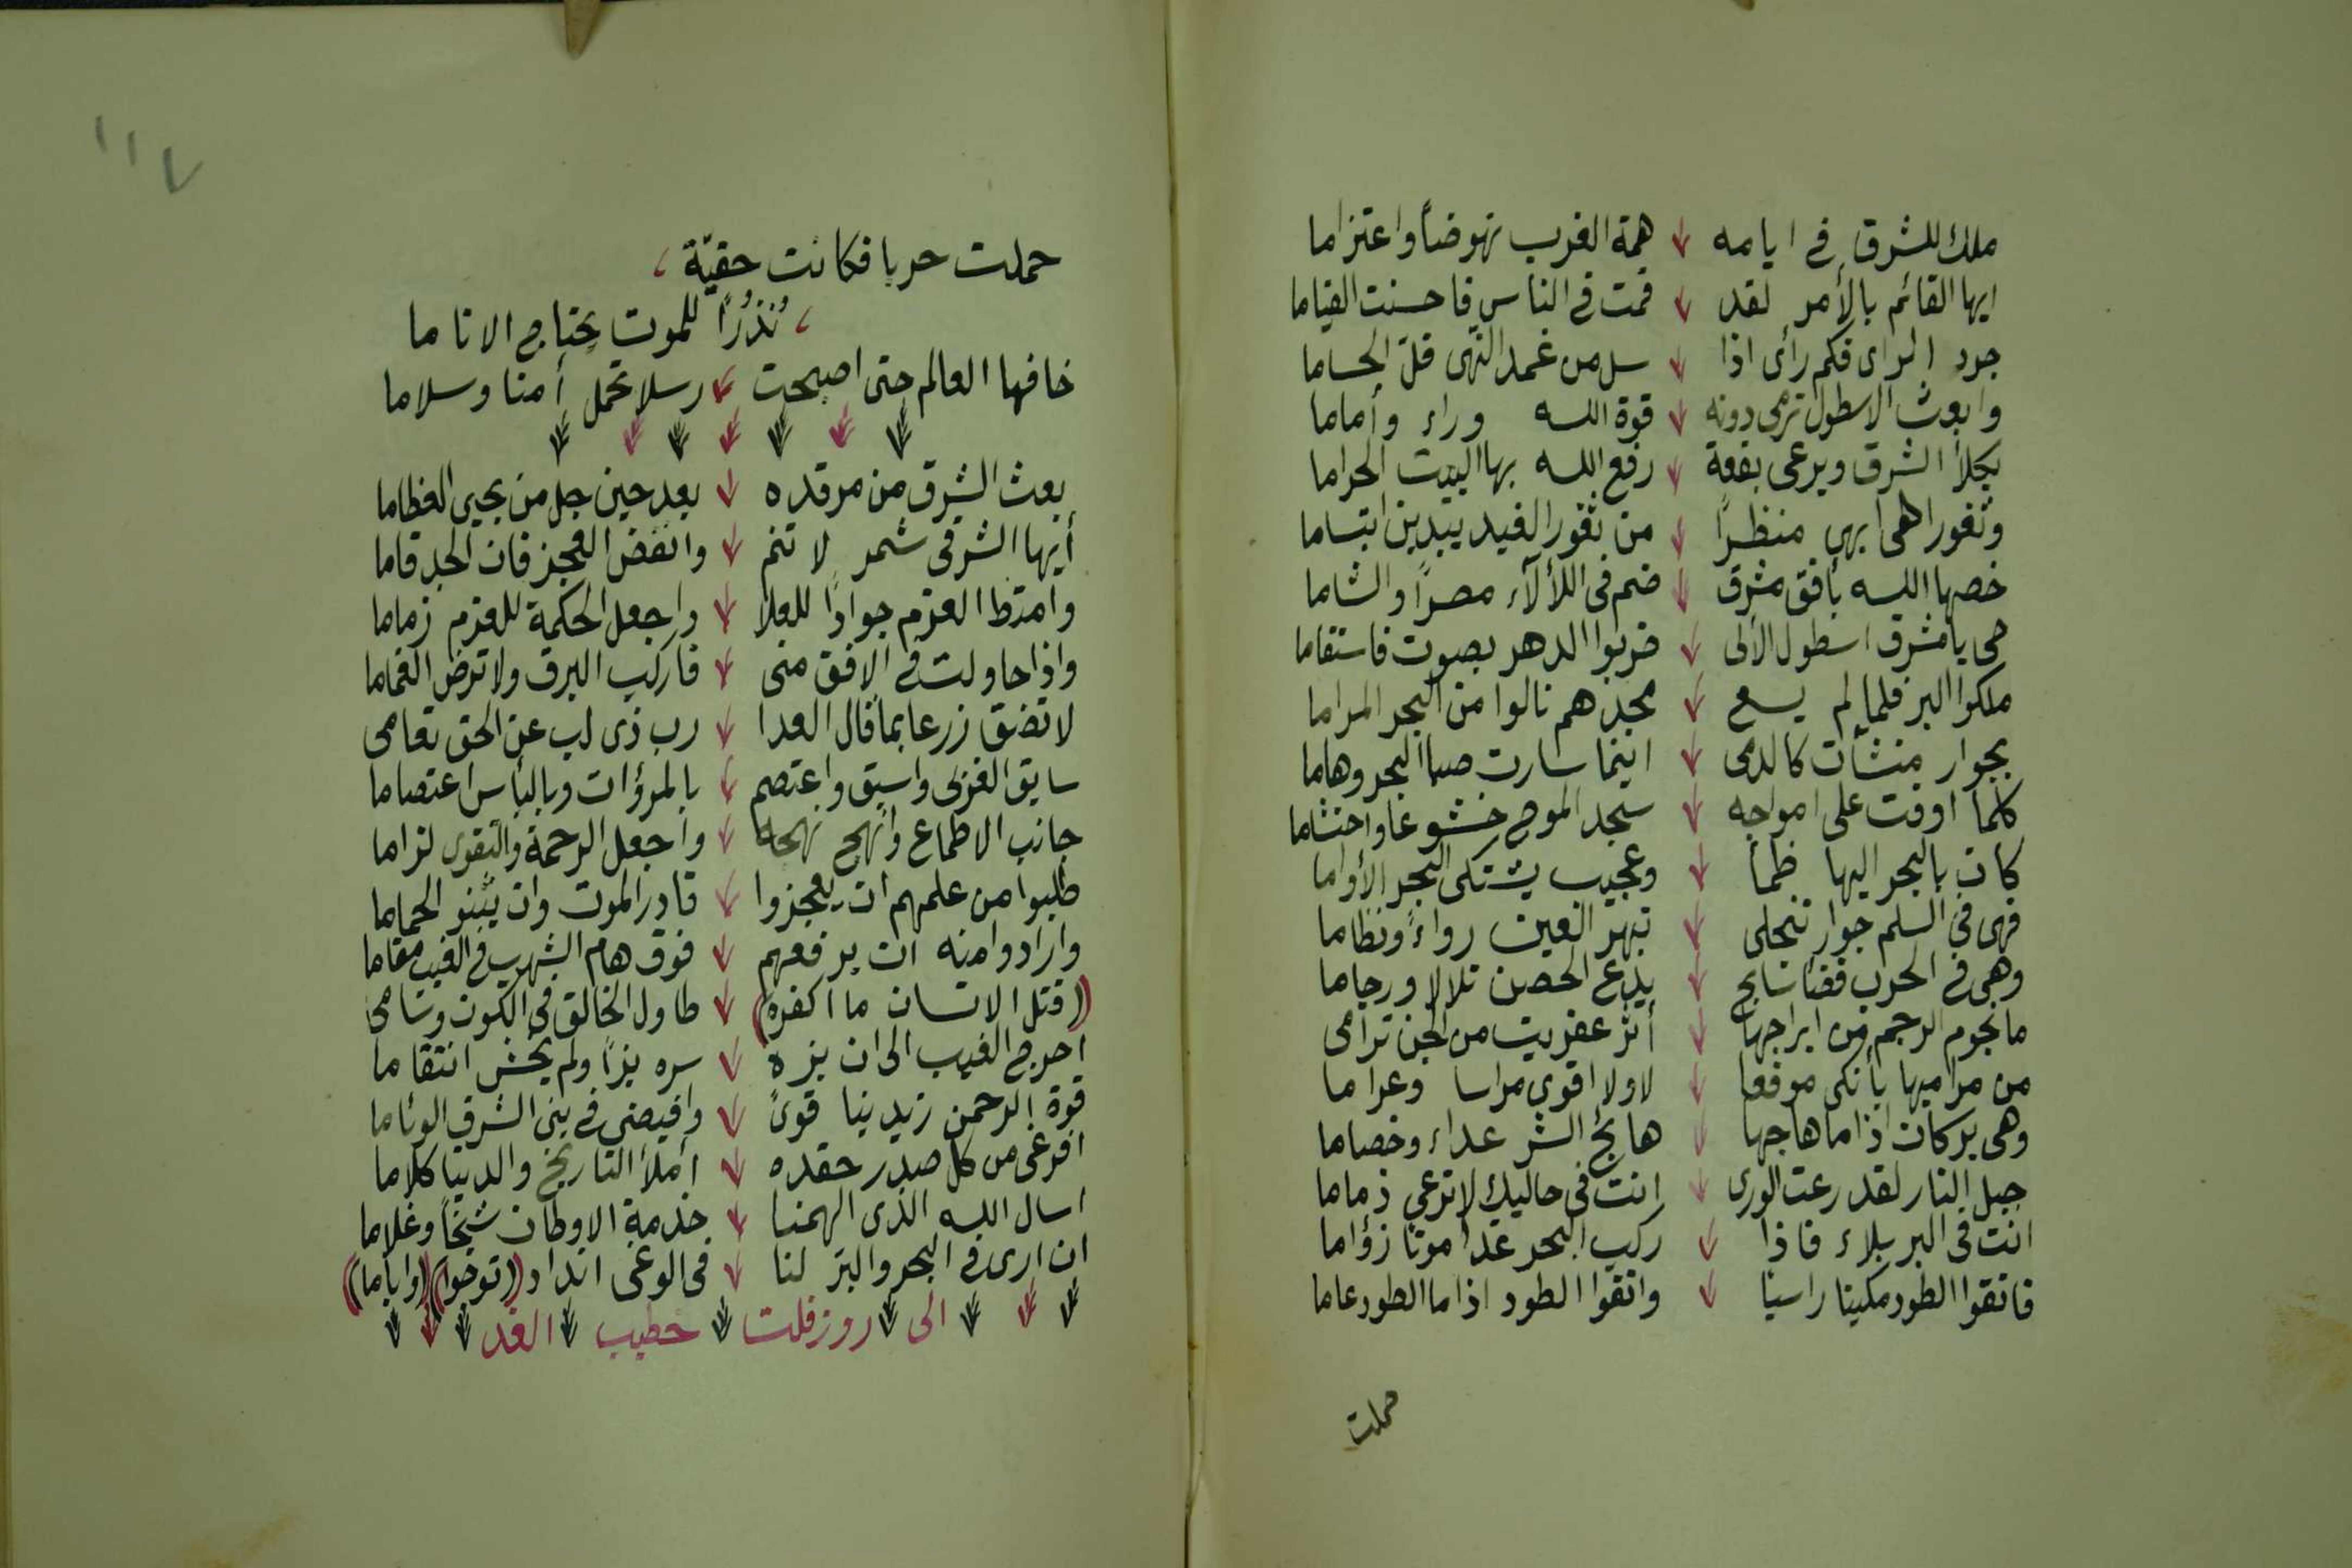 ملك للشرق فى ايامه همة الغرب نهوضاً واعتزاما
ايها القائم بالأمر لقد قمت فى الناس فاحسنت القياما
جرد الراى فكم رأى اذا سل من غمد النهى فلّ الحساما
وابعث الاسطول ترمى دونه قوة الله وراء وأماما
يكلأ الشرق ويرعى بقعة رفع الله بها البيت الحراما
وثغورا هى ابهى منظراً من ثغور الغيد يبدين ابتساما
خصها الله بأفق مشرق ضم فى اللألآء مصراً والشاما
حى يا مشرق اسطول الألى ضربوا الدهر بصوت فاستقاما
ملكوا البر فلما لم يسع مجدهم نالوا من البحر المراما
بجوار منشأت كالدمى اينما سارت صبا البحر وهاما
كلما اوفت على امواجه سجد الموج خشوعا واحتشاما
كان بالبحر اليها ظمأ وعجيب يشتكى البحر الأواما
فهى فى السلم جوار تنجلى تبهر العين رواءً ونظاما
وهى فى الحرب قضا سابح يدع الحصن تلالا ورجاما
ما نجوم الرجم من ابراجها أثر عفريت من الجن ترامى
من مراميها بأنكى موقعا لا ولا اقوى مراسا وعراما
وهى بركان اذا ما هاجها هائج الشر عداء وخصاما
جبل النار لقد رعت الورى انت فى حاليك لا ترعى ذماما
انت فى البر بلاء فاذا ركب البحر غدا موتا زؤاما
فاتقوا الطود مكينا راسيا واتقوا الطود اذا ما الطود عاما
حملت
١١٧
حملت حربا فكانت حقبة
نُذُرًا للموت تجتاح الاناما
خافها العالم حتى اصبحت رسلا تحمل أمنا وسلاما
بعث الشرق من مرقده بعد حين جل من يحيى العظاما
أيها الشرقى شمر لا تنم وانفض العجز فان الجد قاما
وامتط العزم جوادًا للعلا واجعل الحكمة للعزم زماما
واذا حاولت فى الافق منى فاركب البرق ولا ترض الغماما
لا تضق زرعا بما قال العدا رب ذى لب عن الحق تعامى
سابق الغربى واسبق واعتصم بالمرؤات وبالبأس اعتصاما
جانب الاطماع وانهج نهجه واجعل الرحمة والتقوى لزاما
طلبوا من علمهم ان يعجزوا قادر الموت وان يثنو الحماما
وارادوا منه ان يرفعهم فوق هام الشهب فى الغيب مقاما
((قتل الانسان ما اكفره)) طاول الخالق فى الكون وسامى
احرج الغيب الى ان بزه سره بزًا ولم يخش انتقاما
قوة الرحمن زيدينا قوىً وافيضى فى بنى الشرق الوئاما
افرغى من كل صدر حقده املأ التاريخ والدنيا كلاما
اسال الله الذى الهمنا خدمة الاوطان شيخاً وغلاما
ان ارى فى البحر والبر لنا فى الوغى انداد ((توجوا)) ((واياما))
الى روزفلت خطيب الغد